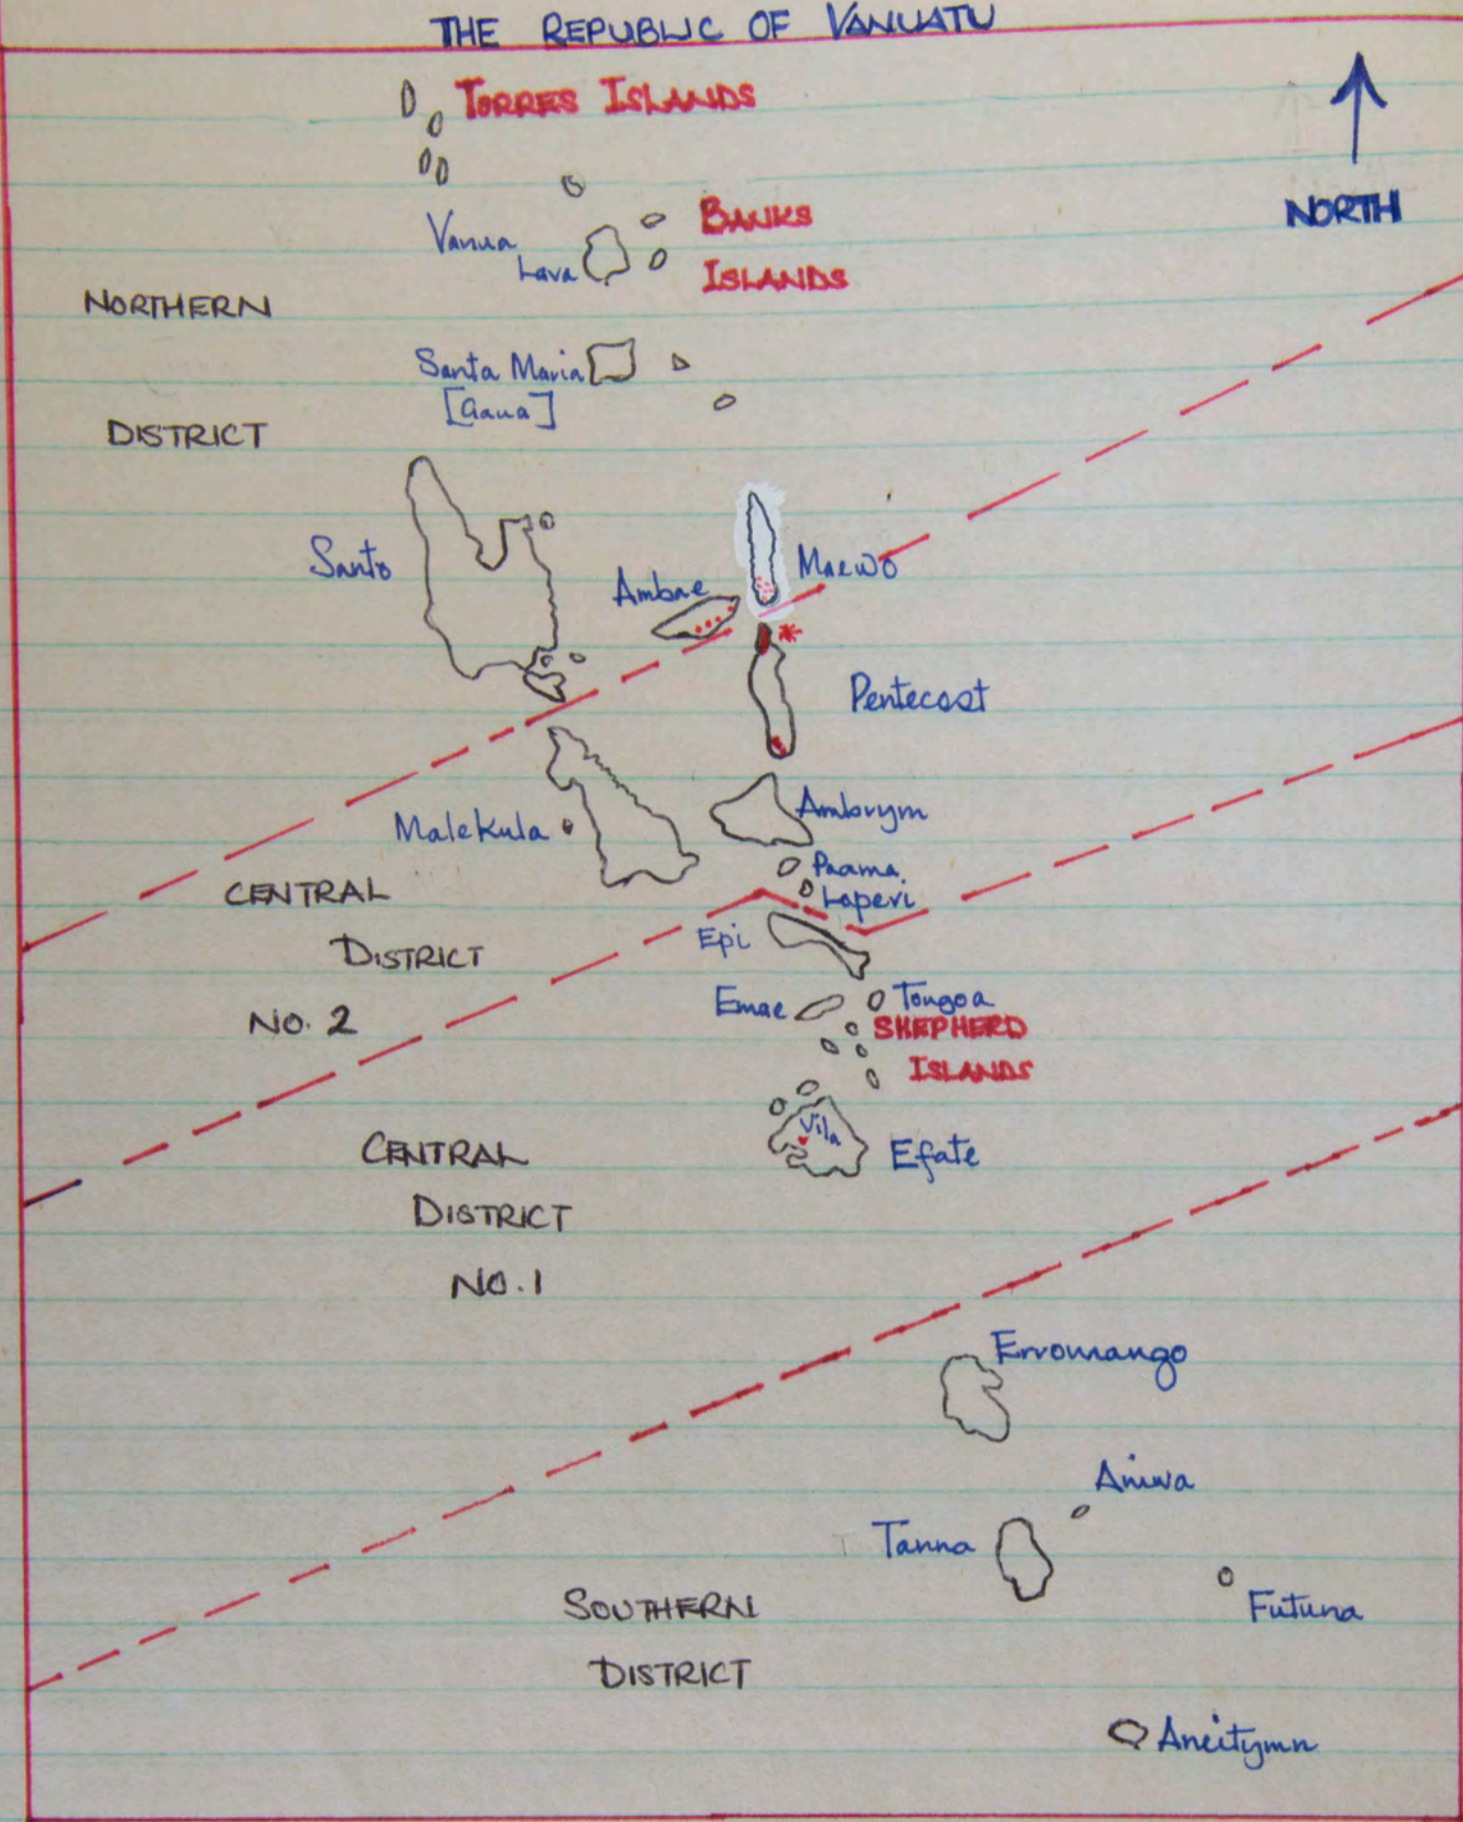 THE REPUBLIC OF VANUATU
TORRES ISLANDS
NORTH
BANKS
ISLANDS
Vanua
Lava
NORTHERN
DISTRICT
Santa Maria
[Gaua]
Santo
Maewo
Ambae
Pentecost
Malekula
Ambrym
Paama
Lopevi
CENTRAL
DISTRICT
NO. 2
Epi
Emae
Tongoa
SHEPHERD
ISLANDS
Vila
Efate
CENTRAL
DISTRICT
NO. 1
Erromango
Aniwa
Tanna
Futuna
SOUTHERN
DISTRICT
Aneitymn